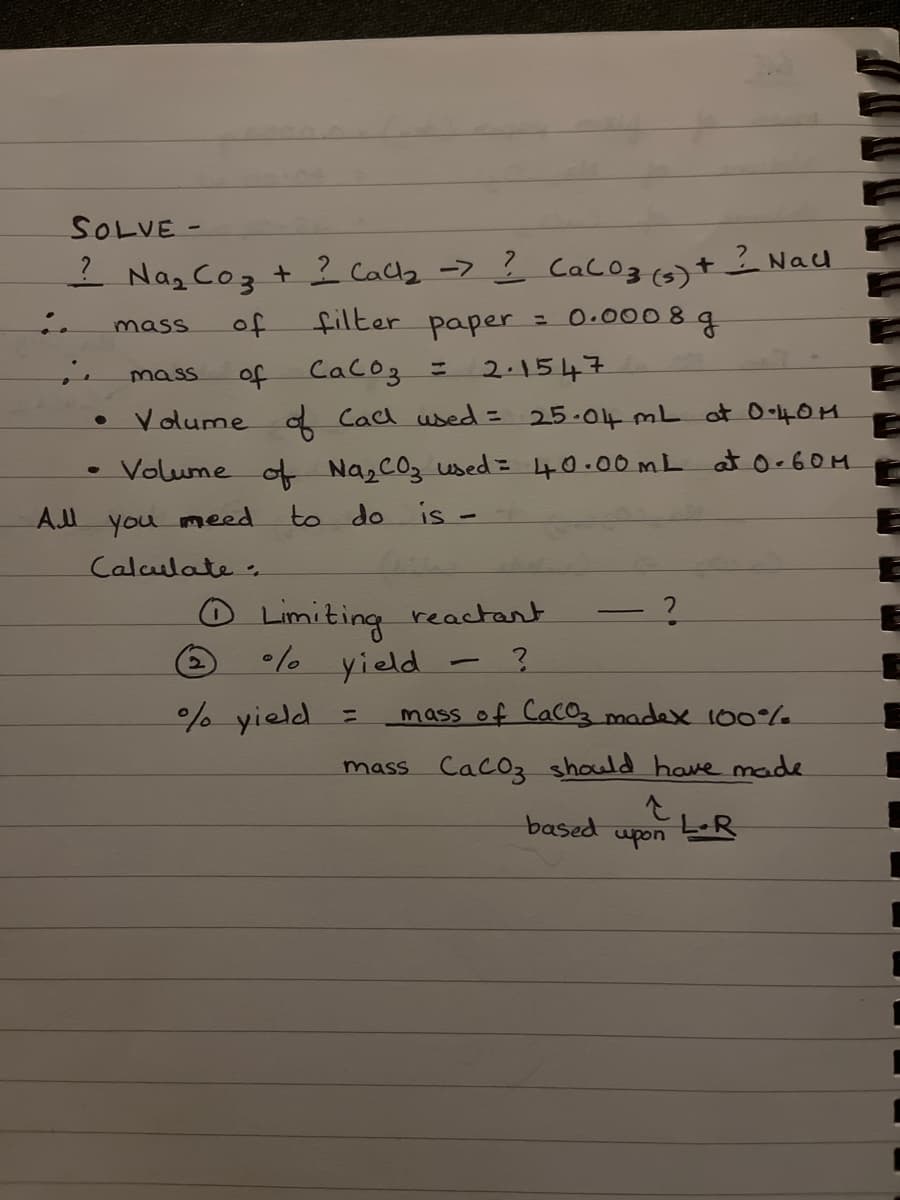 SOLVE -
? Na₂CO₃ + ? CaCl₂ -> ? CaCO₃(s) + ? NaCl
∴ mass of filter paper = 0.0008 g
∴ mass of CaCO₃ = 2.1547
• Volume of CaCl used = 25.04 mL at 0.40M
• Volume of Na₂CO₃ used = 40.00 mL at 0.60M
All you need to do is -
Calculate :
① Limiting reactant — ?
② % yield - ?
% yield = mass of CaCO₃ made x 100%
mass CaCO₃ should have made
↑
based upon L.R